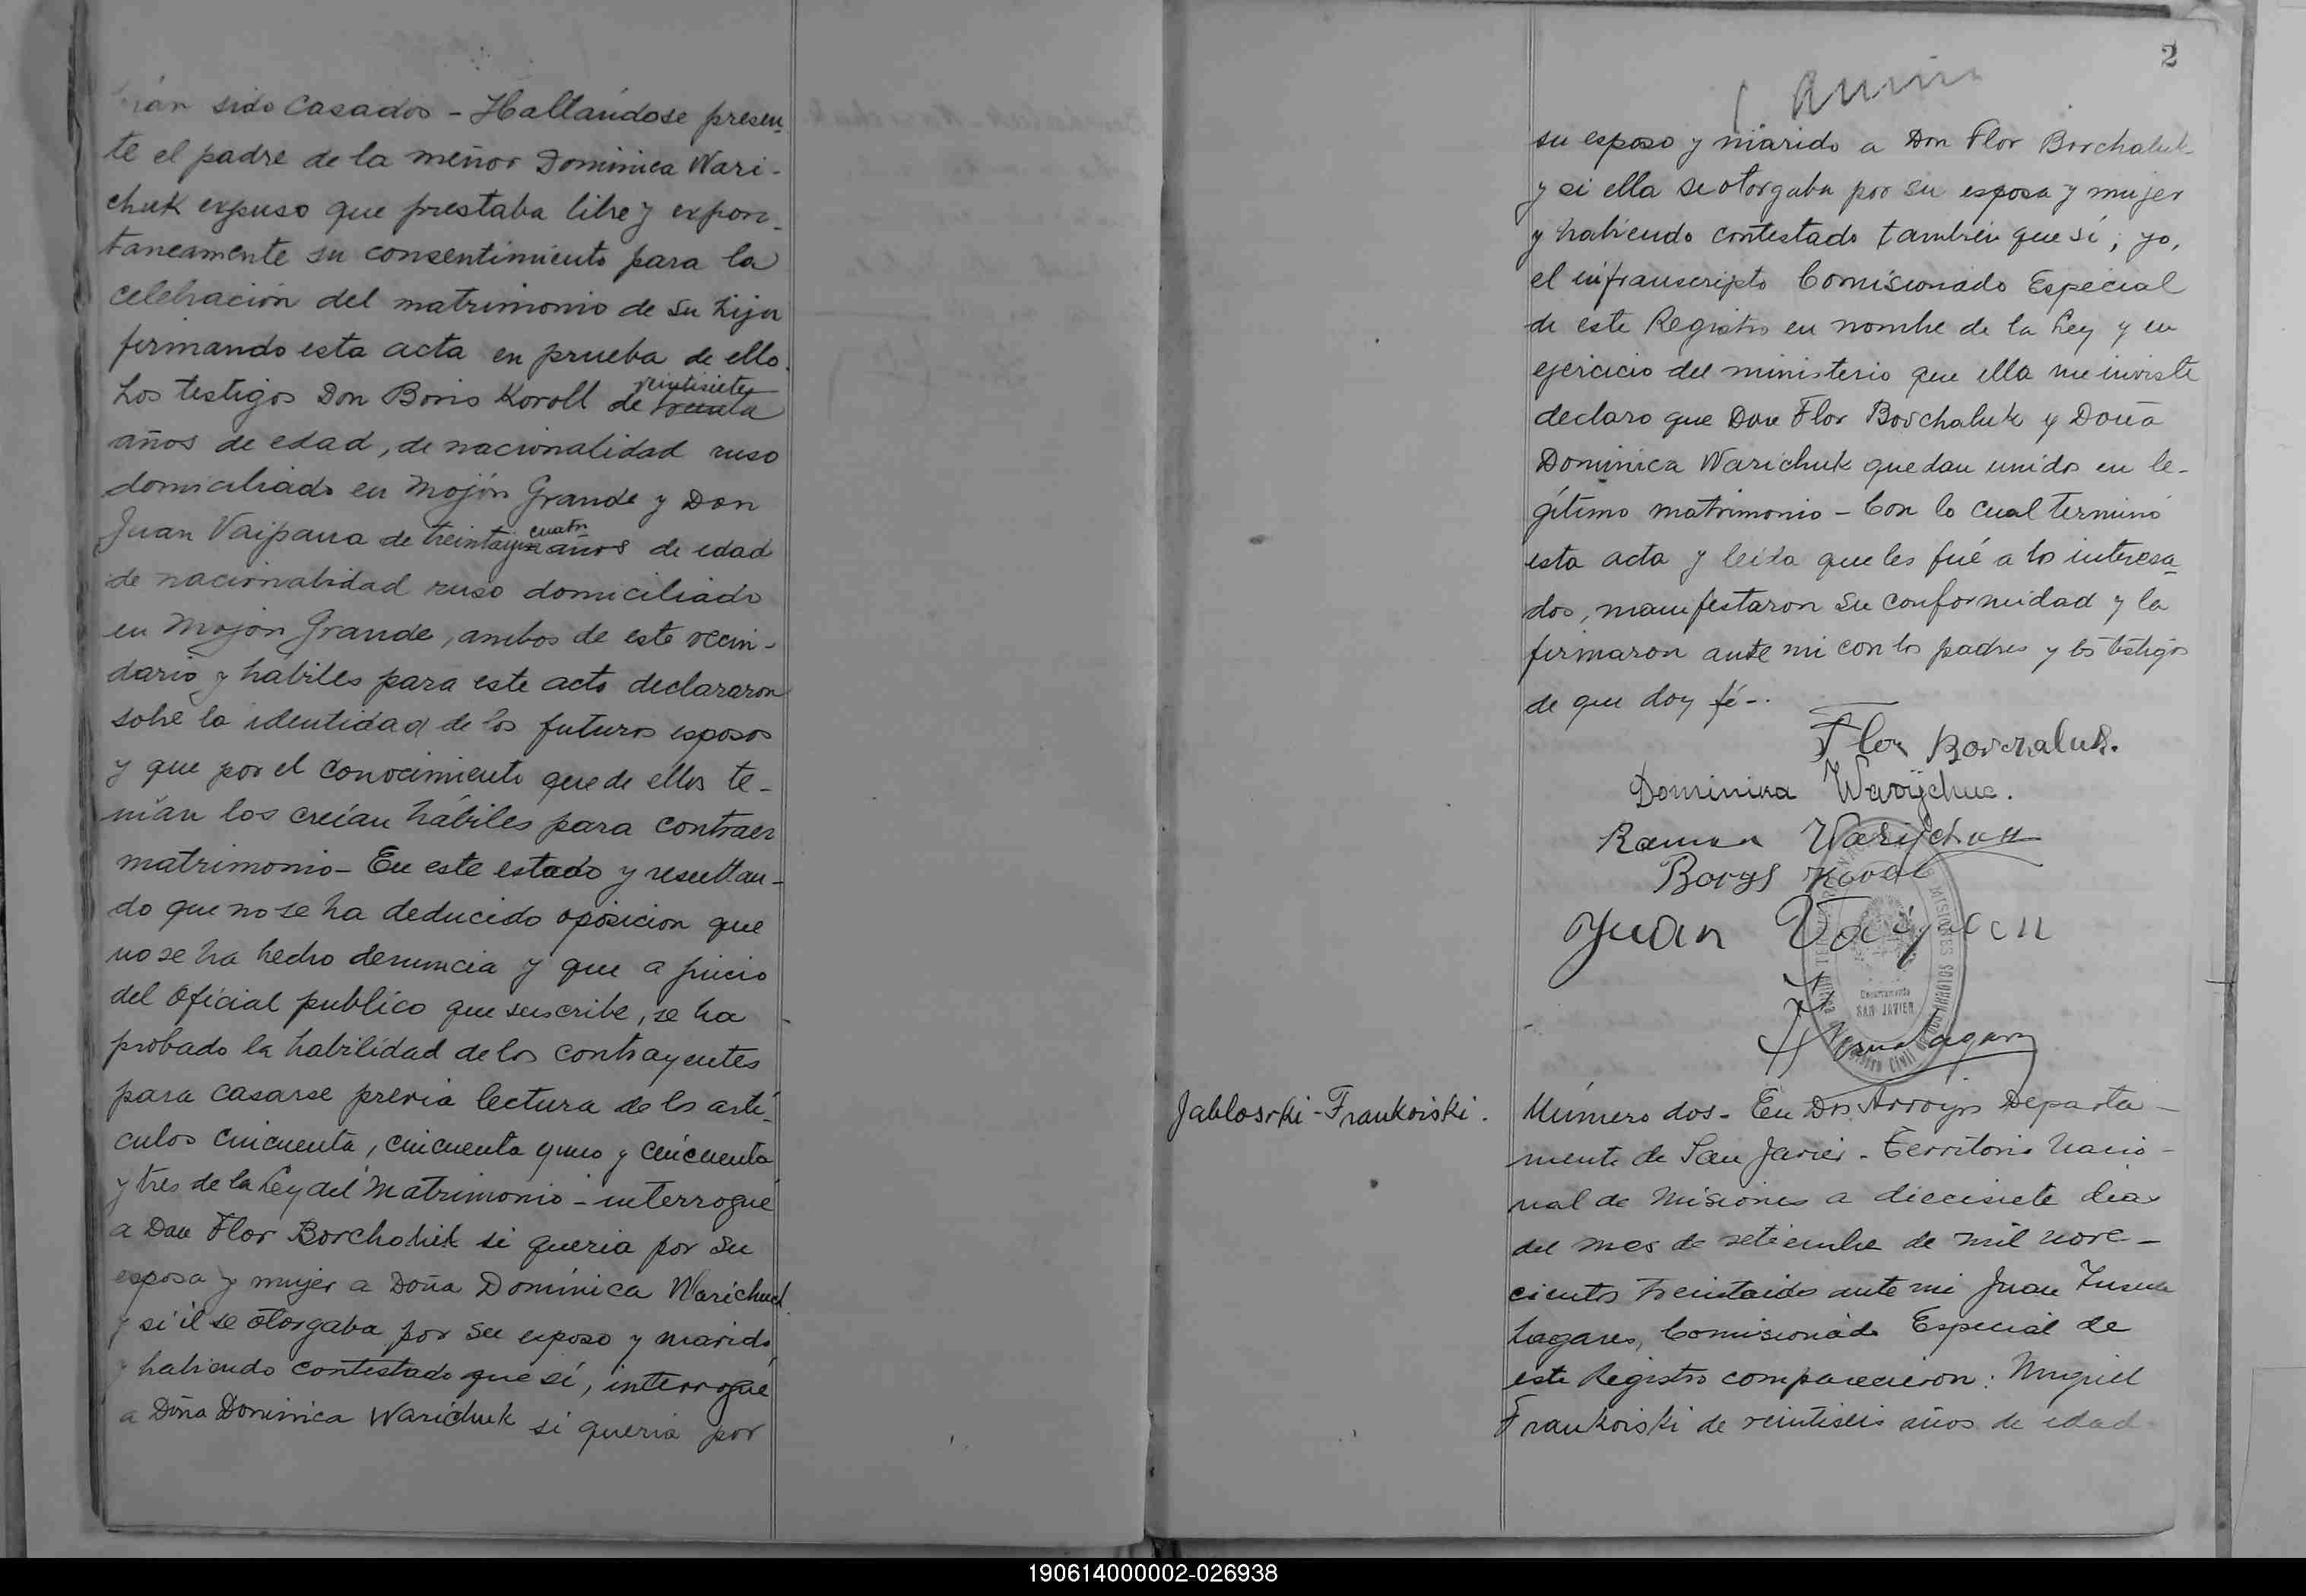 sido Casados - Hallandose presen-
te el padre de la menor Dominica Wari-
chuk expuso que prestaba libre y expon-
taneamente su consentimiento para la
celebración del matrimonio de su hija
firmando esta acta en prueba de ello.
veintisiete
Los testigos Don Boris Koroll de treinta
años de edad, de nacionalidad ruso
domiciliado en Mojón Grande y Don
cuatro
Juan Vaipana de treintayun años de edad
de nacionalidad ruso domiciliado
en Mojón Grande, ambos de este vecin-
dario y habiles para este acto declararon
sobre la identidad de los futuros esposos
y que por el conocimiento que de ellos te-
nían los creían hábiles para contraer
matrimonio - En este estado y resultan-
do que no se ha deducido oposicion que
no se ha hecho denuncia y que a juicio
del Oficial publico que suscribe, se ha
probado la habilidad de los contrayentes
para casarse previa lectura de los artí-
culos cincuenta, cincuenta y uno y cincuenta
y tres de la Ley del Matrimonio - interrogué
a Don Flor Borchaluk si queria por su
esposa y mujer a Doña Dominica Warichuk
y si él se otorgaba por su esposo y marido,
y habiendo contestado que sí, interrogue
a Doña Dominica Warichuk si queria por
2
su esposo y marido a Don Flor Borchaluk
y si ella se otorgaba por su esposa y mujer
y habiendo contestado también que sí, yo,
el infranscripto Comisionado Especial
de este Registro en nombre de la Ley y en
ejercicio del ministerio que ella me inviste
declaro que Don Flor Borchaluk y Doña
Dominica Warichuk quedan unidos en le-
gítimo matrimonio - Con lo cual terminó
esta acta y leída que les fué a los interesa-
dos, manifestaron su conformidad y la
firmaron ante mi con los padres y los testigos
de que doy fé -.
Flor Borchaluk.
Dominika Warychuc.
Ramon Warychuk
Borys Koral
Juan
MISIONES
Departamento
SAN JAVIER
Registro Civil
Jablosrki - Frankoiski.
Número dos - En Dos Arroyos Departa-
mento de San Javier - Territorio Nacio-
nal de Misiones a diecisiete dias
del mes de setiembre de mil nove-
cientos treintaidos ante mi Juan
Lagares, Comisionado Especial de
este Registro comparecieron: Miguel
Frankoiski de veintiseis años de edad
190614000002-026938